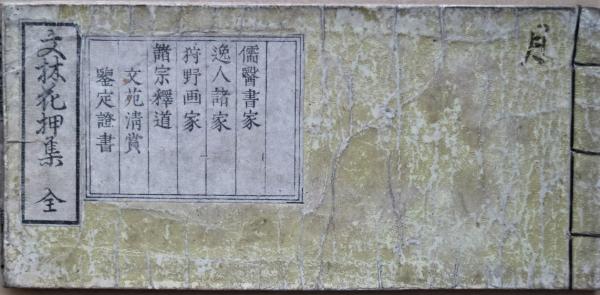 文林花押集 全
儒醫書家
逸人諸家
狩野画家
諸宗釋道
文苑清賞
鑒定證書